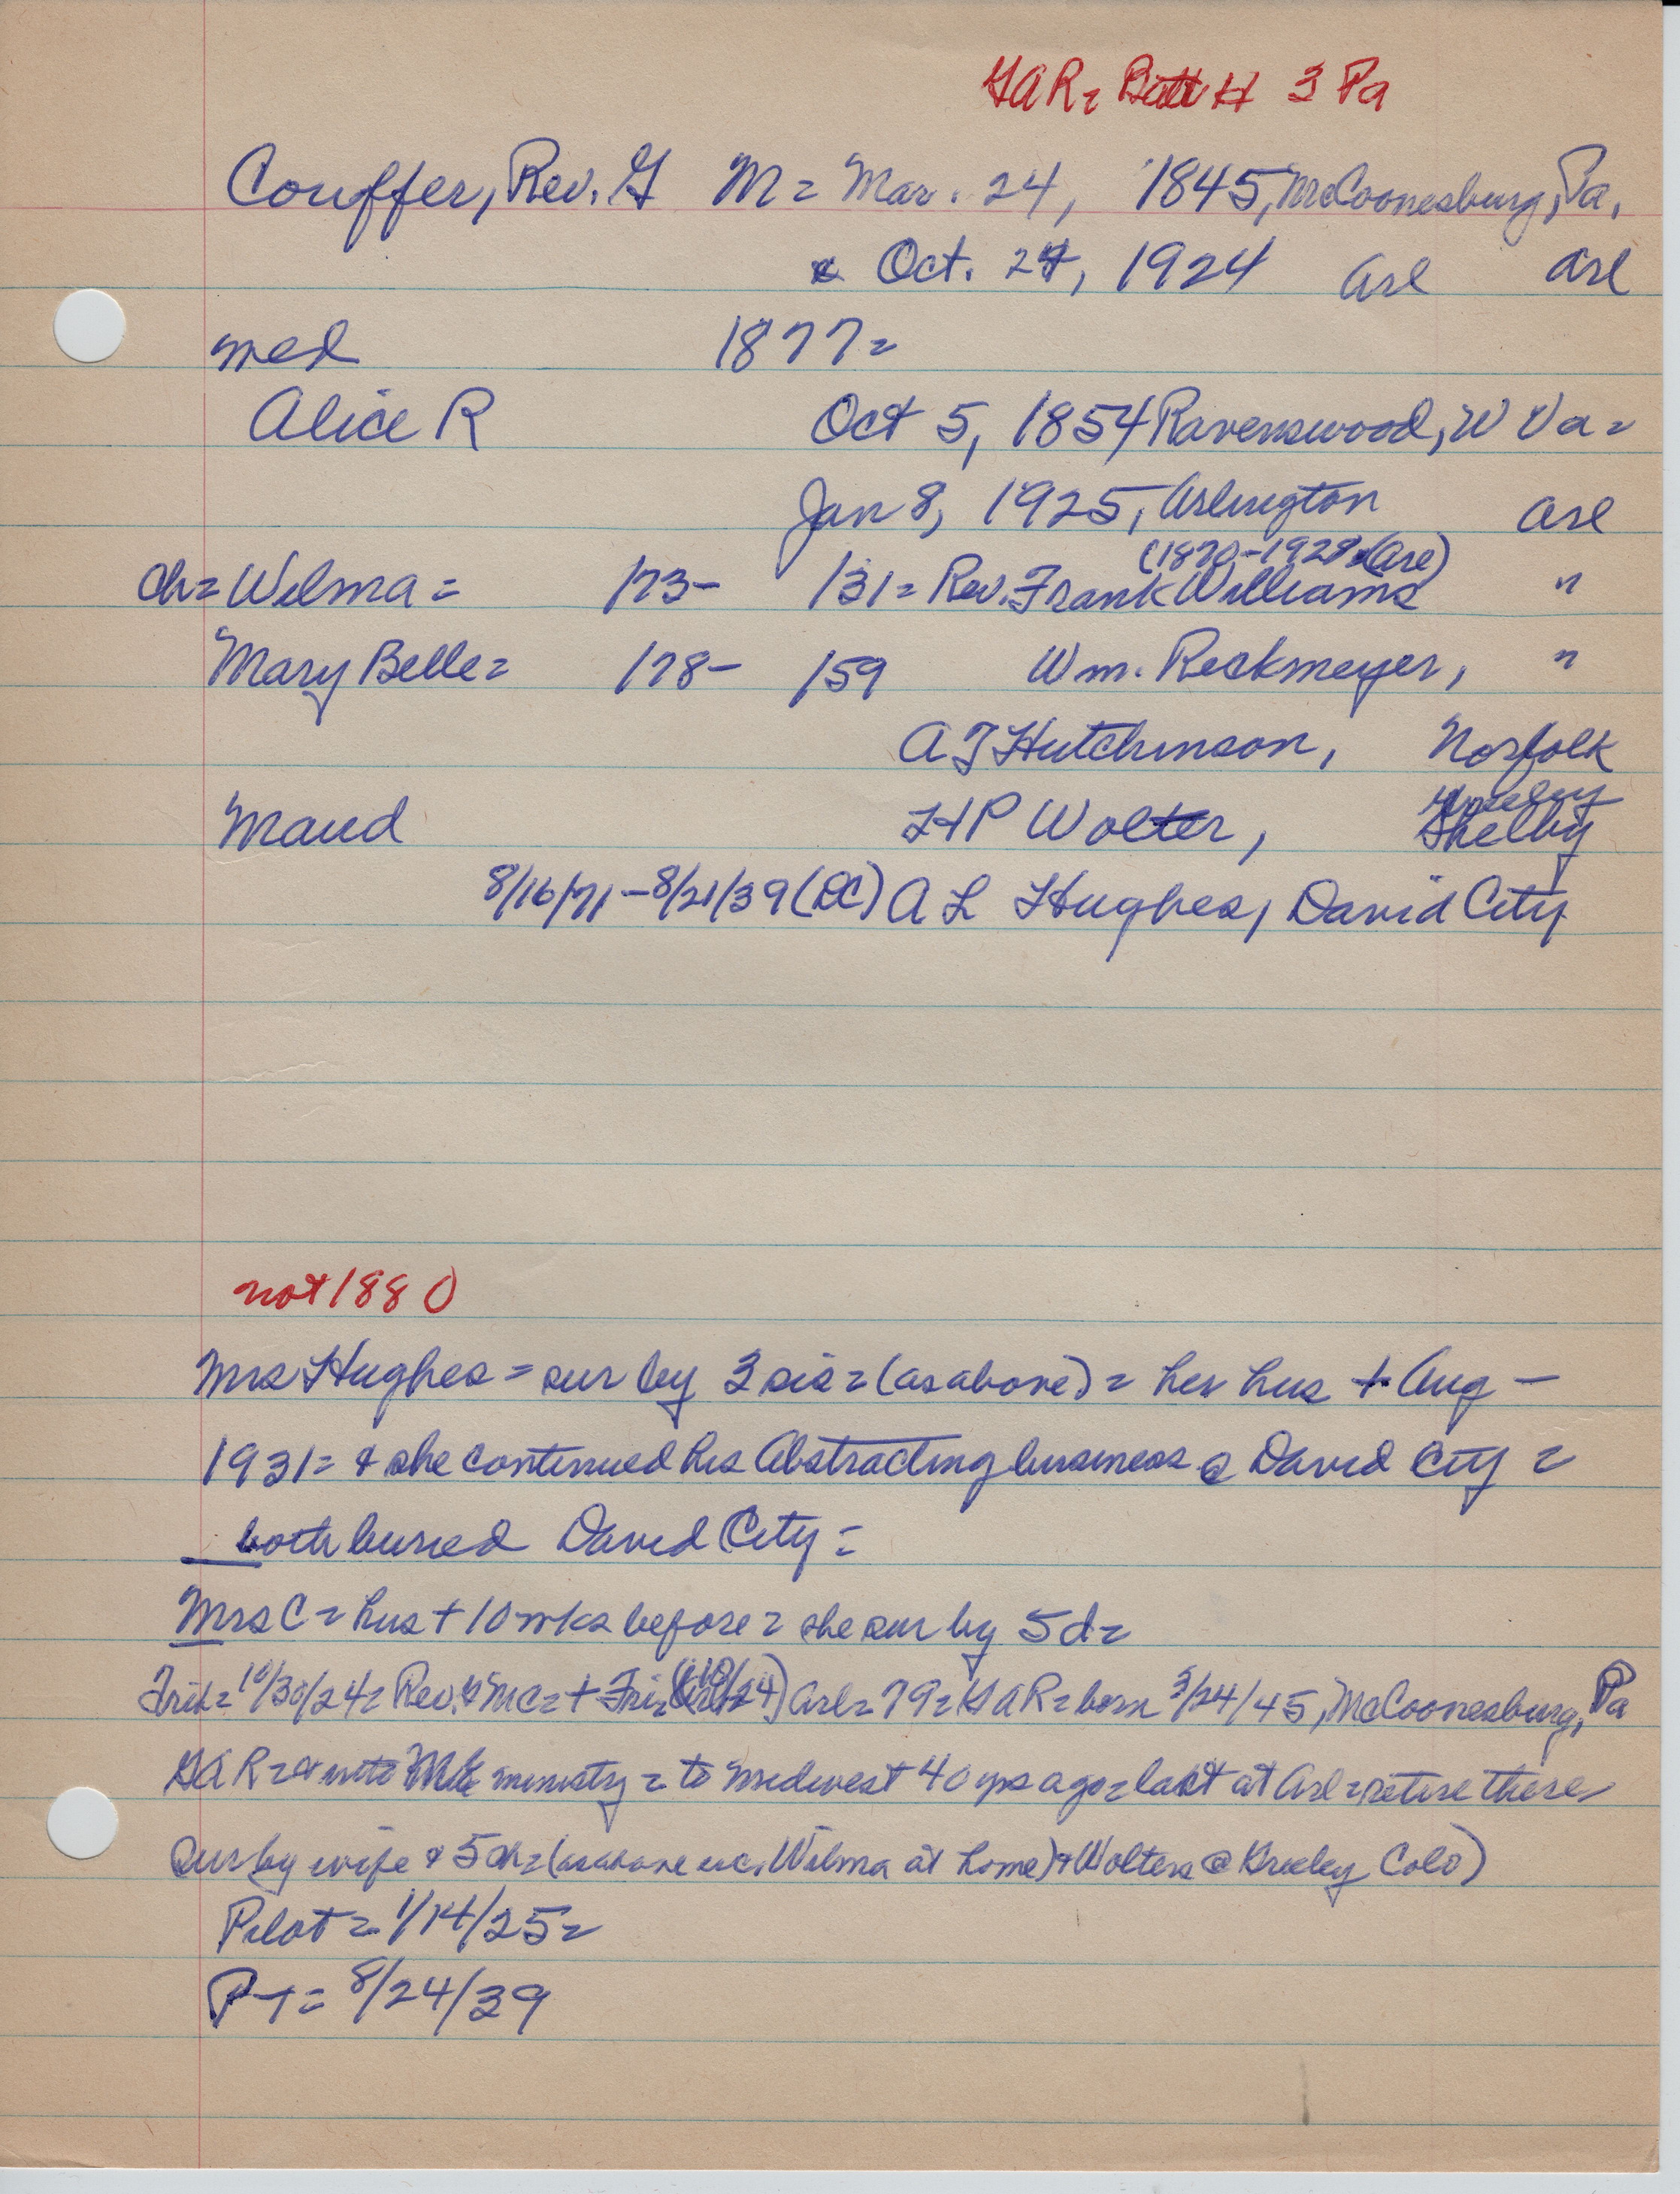 GAR = Batt H 3 Pa
Couffer, Rev. G M = Mar. 24, 1845, McCoonesburg, Pa,
Oct. 24, 1924 Arl Arl
med 1877 =
Alice R Oct 5, 1854 Ravenswood, W Va =
Jan 8, 1925, Arlington Arl
(1870-1928 (Arl)
ch = Wilma = /73- /31 = Rev. Frank Williams "
Mary Belle = /78- /59 Wm. Reckmeyer, "
A J Hutchinson, Norfolk
Maud H P Wolter, Shelby
8/16/71 - 8/21/39 (DC) A L Hughes, David City
not 1880
Mrs Hughes = sur by 3 sis = (as above) = her hus + Aug -
1931 = & she continued his Abstracting business @ David City =
both buried David City =
Mrs C = hus + 10 wks before = she sur by 5 d =
Trib = 10/30/24 = Rev. G M C = + Fri = Arl = 79 = GAR = born 3/24/45, McCoonesburg, Pa
GAR = & into ministry = to midwest 40 yrs ago = last at Arl = retire there
Sur by wife & 5 ch = (as above exc. Wilma at home) & Wolters @ Greeley Colo)
Pilot = 1/14/25 =
PT = 8/24/39